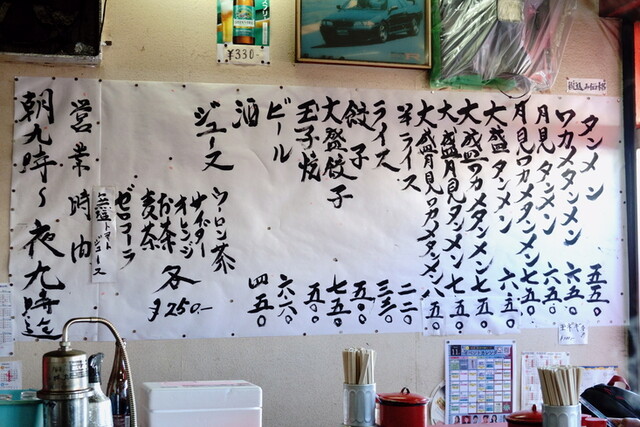 ¥330-
税込み価格
タンメン 五五〇
ワカメタンメン 六五〇
月見タンメン
月見ワカメタンメン 七五〇
大盛タンメン 六五〇
大盛ワカメタンメン 七五〇
大盛月見タンメン 七五〇
大盛月見ワカメタンメン 八五〇
半ライス 二二〇
ライス 三三〇
餃子
大盛餃子 七五〇
玉子焼
ビール
酒 四五〇
ジュース
ウーロン茶
サイダー
オレンジ
お茶
麦茶
各¥250.-
ゼロコーラ
無塩トマトジュース
営業時間
朝九時〜夜九時迄